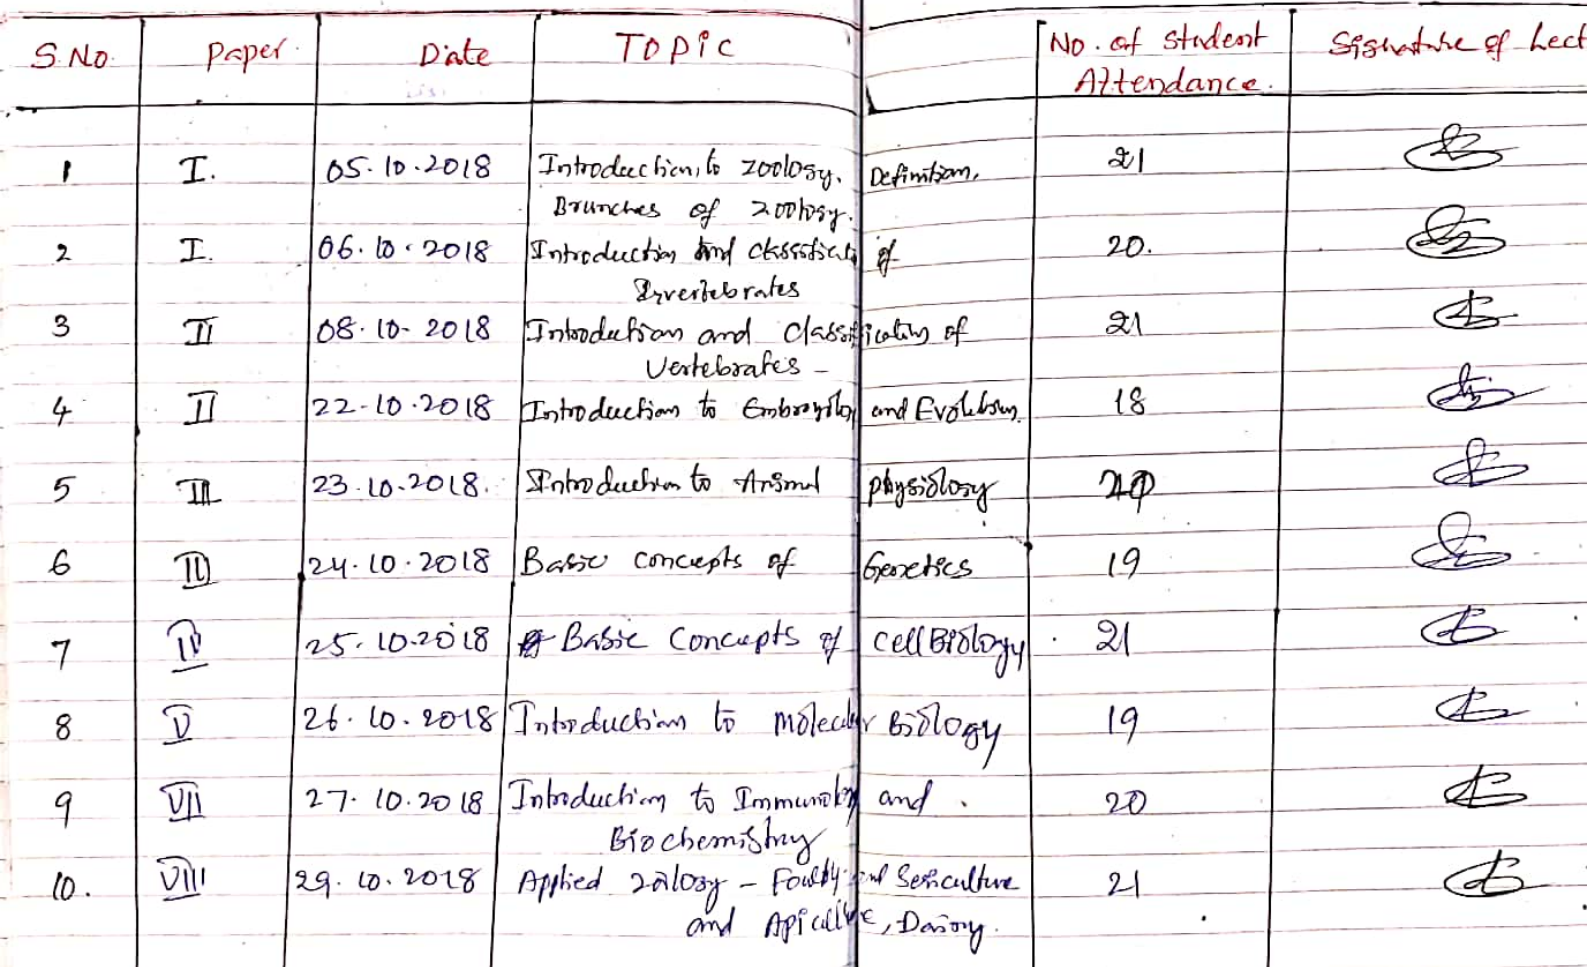 S.No. Paper. Date TOPIC No. of Student Signature of Lect
Attendance.
1 I. 05.10.2018 Introduction, to zoology. Definition. 21
Brunches of zoology.
2 I. 06.10.2018 Introduction and of 20.
Invertebrates
3 II 08.10-2018 Introduction and Classification of 21
Vertebrates -
4 II 22-10.2018 Introduction to Embryology and Evolution. 18
5 III 23.10.2018. Introduction to Animal physiology
6 III 24.10.2018 Basic concepts of Genetics 19
7 IV 25.10.2018 Basic Concepts of Cell Biology . 21
8 V 26.10.2018 Introduction to molecular Biology 19
9 VII 27.10.2018 Introduction to Immunology and . 20
Biochemistry
10. VIII 29.10.2018 Applied zoology - and Sericulture 21
and Apiculture, Dairy.